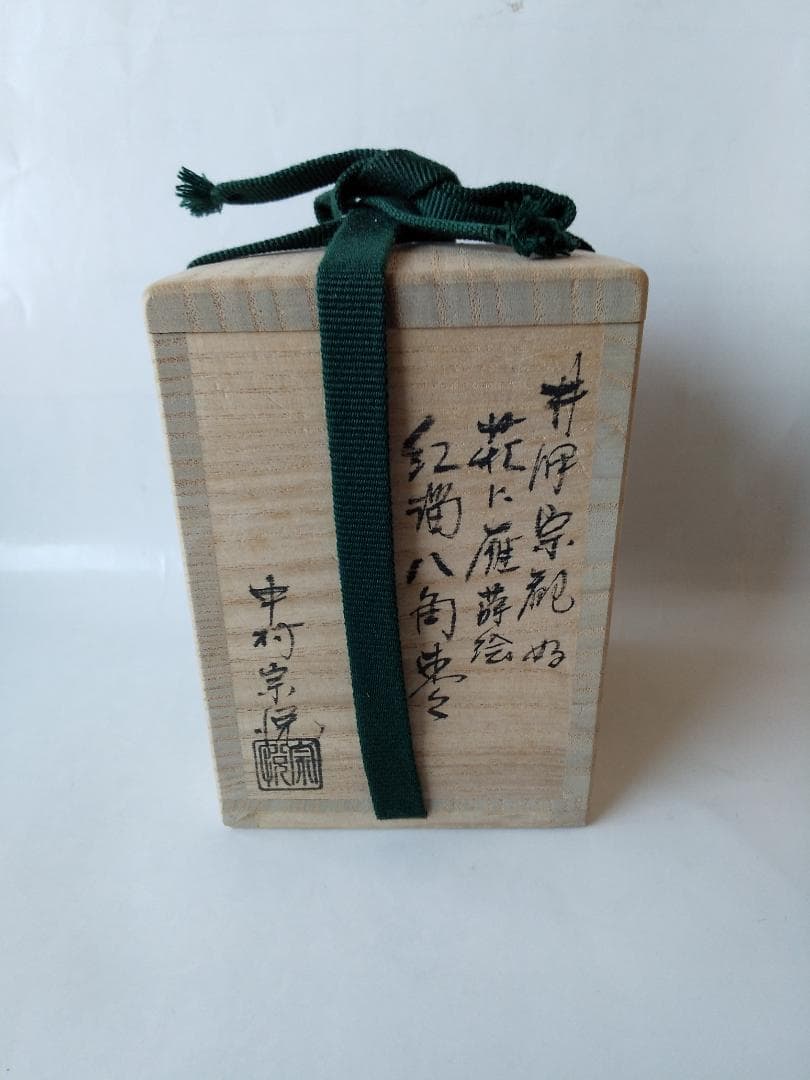 井伊宗観好
萩に雁蒔絵
紅溜八角棗
中村宗悦
宗悦